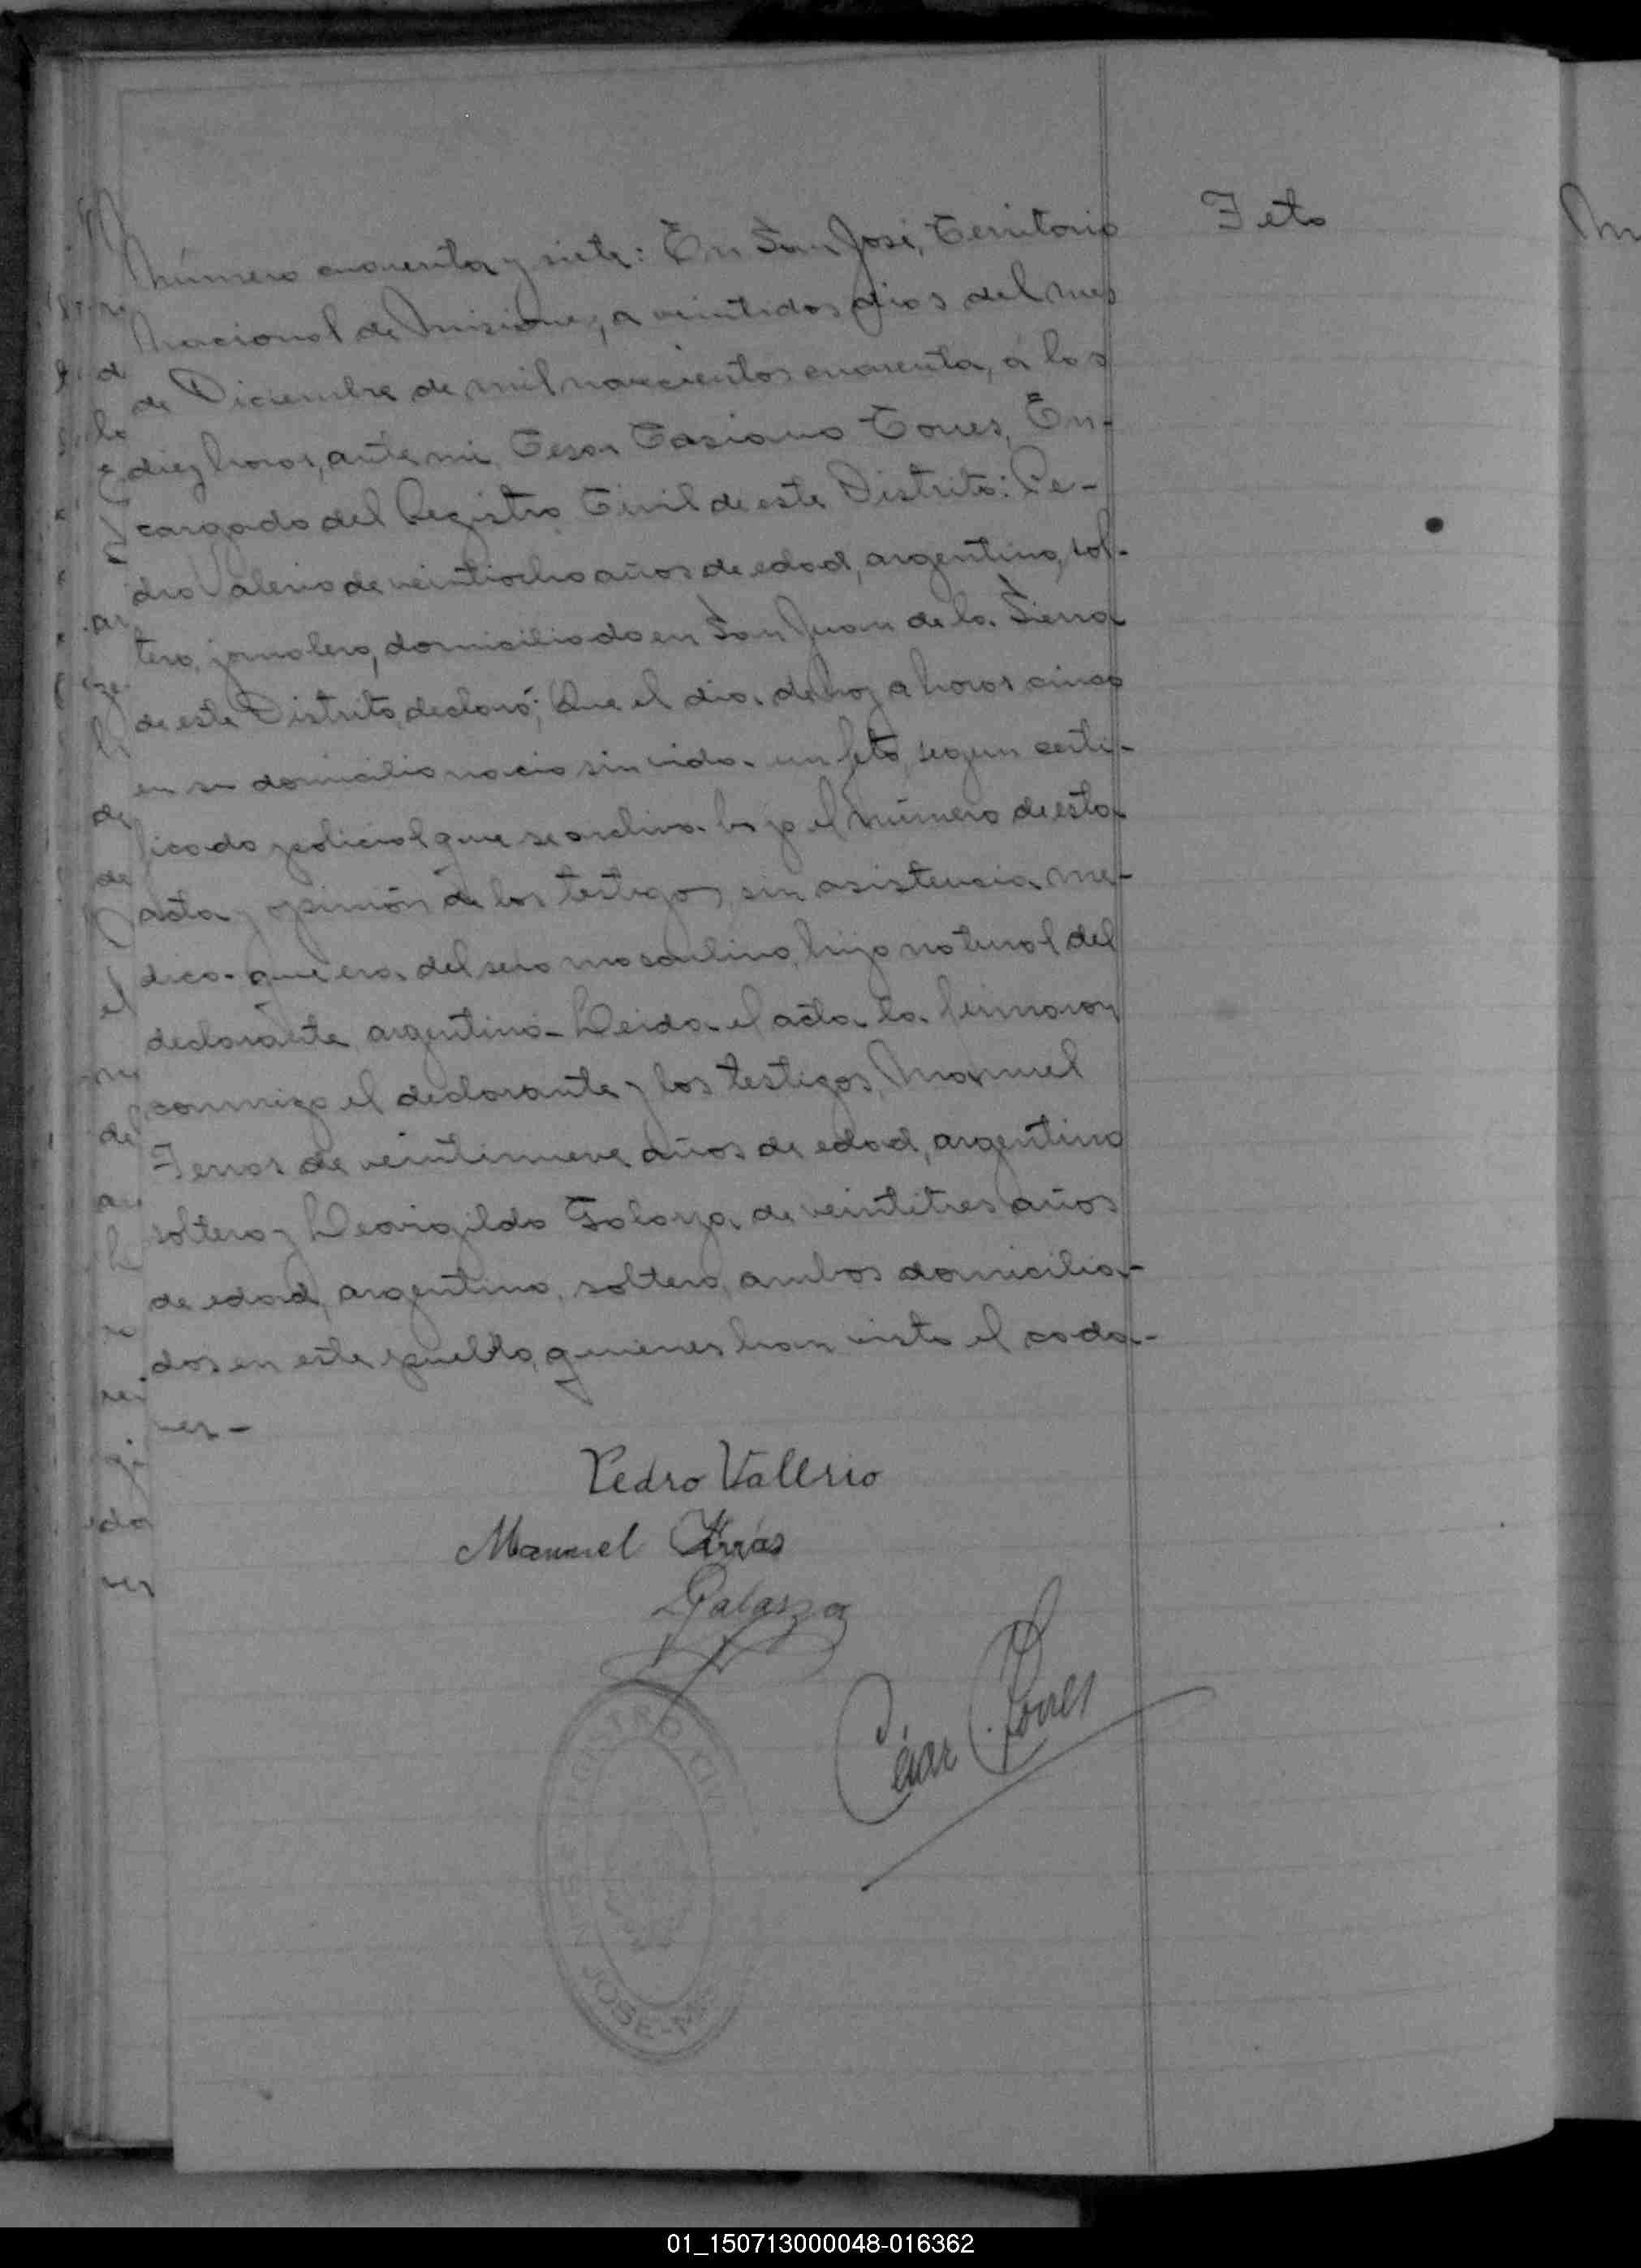 Feto
Número cuarenta y siete: En San José, Territorio
Nacional de Misiones, a veintidos dias del mes
de Diciembre de mil novecientos cuarenta, a las
diez horas, ante mi, Cesar Casiano Torres, En-
cargado del Registro Civil de este Distrito: Pe-
dro Valerio de veintiocho años de edad, argentino, sol-
tero, jornalero, domiciliado en San Juan de la Sierra
de este Distrito, declaró: Que el dia de hoy a horas cinco
en su domicilio nació sin vida un feto, segun certi-
ficado policial que se archiva bajo el número de esta
acta y opinión de los testigos, sin asistencia me-
dica- que era del sexo masculino, hijo natural del
declarante, argentino- Leida el acta la firmaron
conmigo el declarante y los testigos, Manuel
de veintinueve años de edad, argentino
soltero y Leovigildo Galarza, de veintitres años
de edad, argentino, soltero, ambos domicilia-
dos en este pueblo, quienes han visto el cada-
ver-
Pedro Valerio
Manuel
LGalarza
César C. Torres
REGISTRO CIVIL
SAN JOSE-
01_150713000048-016362